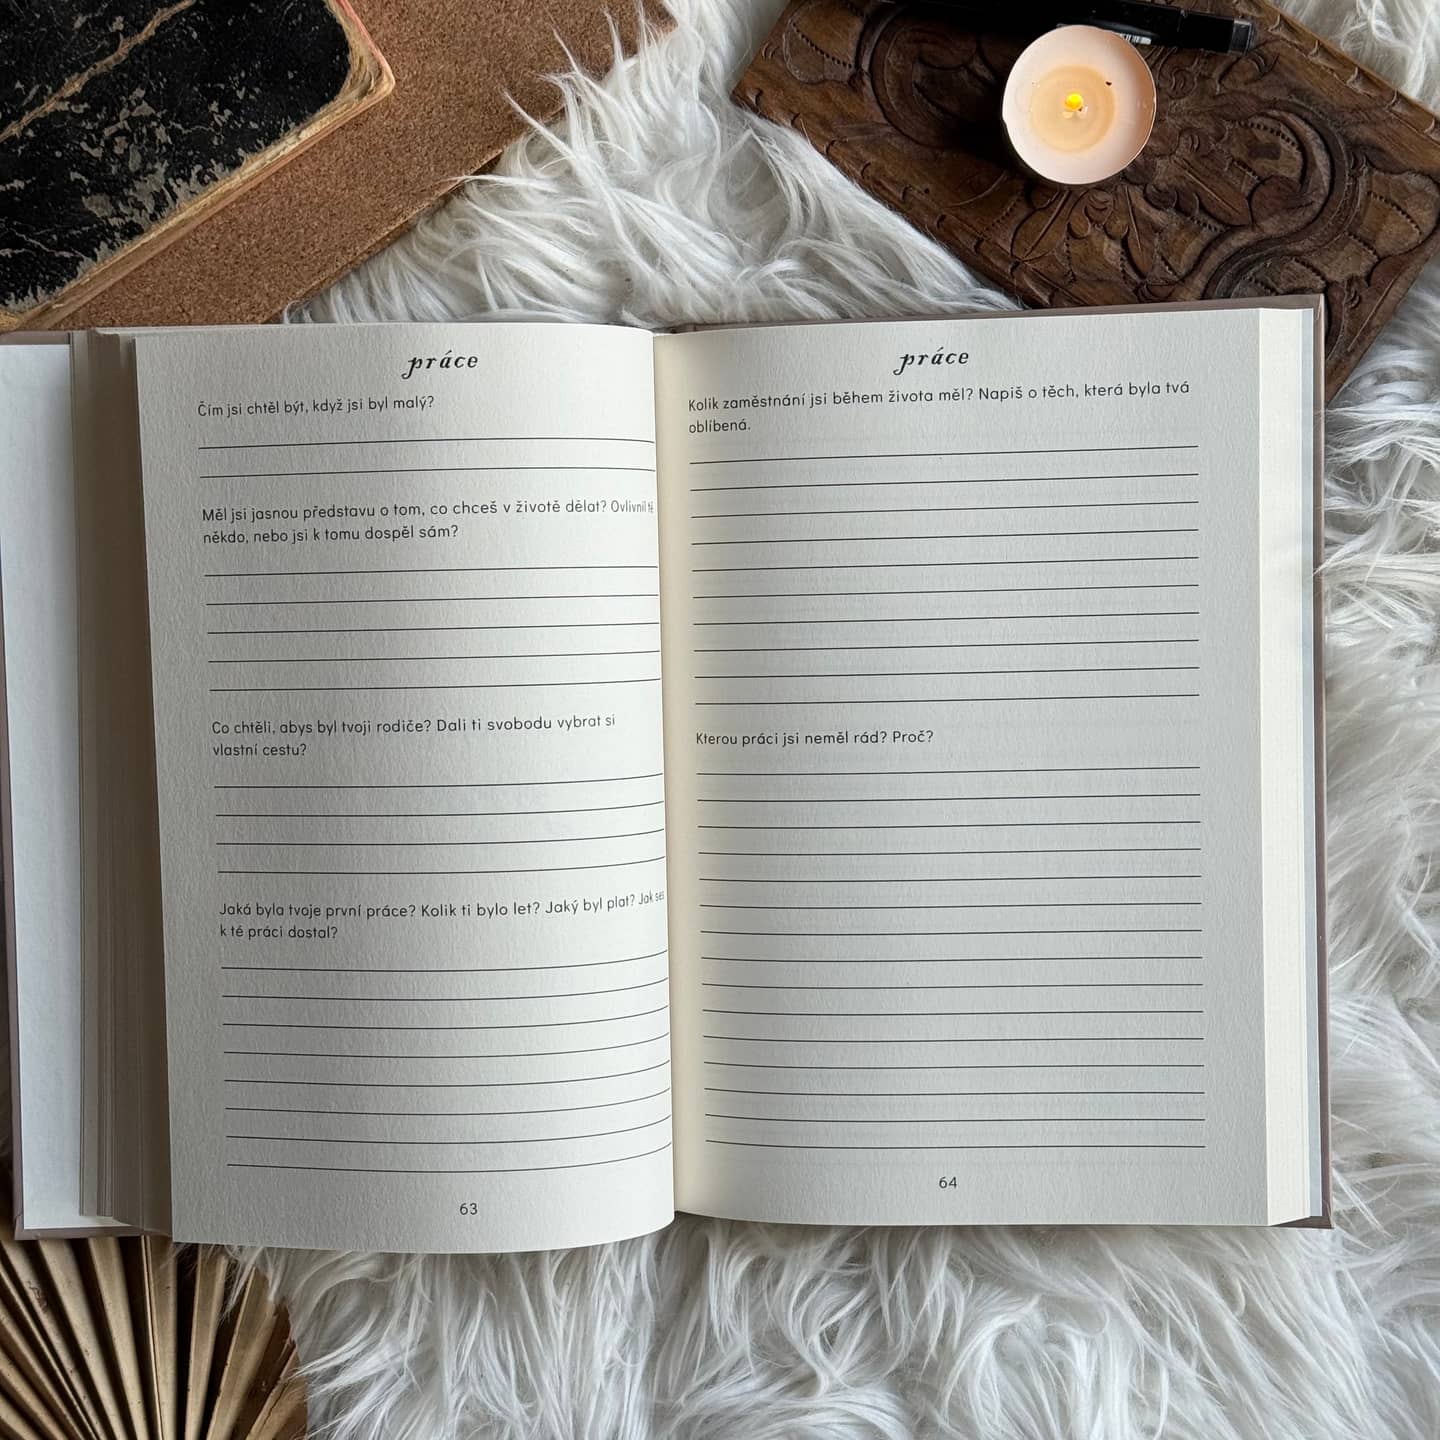 práce
Čím jsi chtěl být, když jsi byl malý?
Měl jsi jasnou představu o tom, co chceš v životě dělat? Ovlivnil tě
někdo, nebo jsi k tomu dospěl sám?
Co chtěli, abys byl tvoji rodiče? Dali ti svobodu vybrat si
vlastní cestu?
Jaká byla tvoje první práce? Kolik ti bylo let? Jaký byl plat? Jak ses
k té práci dostal?
63
práce
Kolik zaměstnání jsi během života měl? Napiš o těch, která byla tvá
oblíbená.
Kterou práci jsi neměl rád? Proč?
64